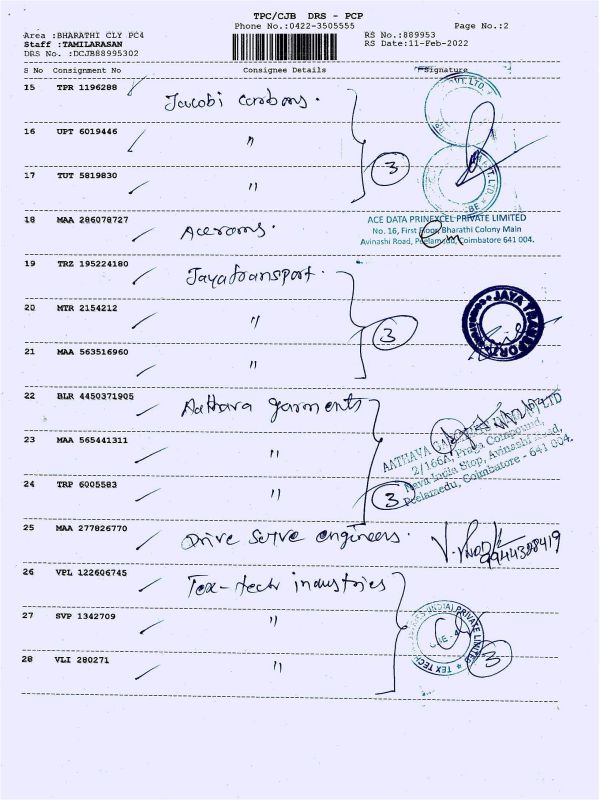 TPC/CJB DRS - PCP
Phone No.:0422-3505555 Page No.:2
Area :BHARATHI CLY PC4 RS No.:889953
Staff :TAMILARASAN RS Date:11-Feb-2022
DRS No. :DCJB88995302
S No Consignment No Consignee Details Signature
15 TPR 1196288 Jacobi carbons.
16 UPT 6019446 "
17 TUT 5819830 " 3
PVT. LTD.
18 MAA 286078727
ACE DATA PRINEXCEL PRIVATE LIMITED
No. 16, First Floor, Bharathi Colony Main
Avinashi Road, Peelamedu, Coimbatore 641 004.
19 TRZ 195224180 Jayatransport.
20 MTR 2154212 " 3
JAYA TRANSPORT
21 MAA 563516960 "
22 BLR 4450371905 Aathava garments
23 MAA 565441311 "
AATHAVA GARMENTS PVT LTD
2/166A, Praya Compound,
Nava India Stop, Avinashi Road,
Peelamedu, Coimbatore - 641 004.
24 TRP 6005583 " 3
25 MAA 277826770 Drive Serve engineers.
9944308419
26 VPL 122606745 Tex-tech industries
27 SVP 1342709 "
(INDIA) PRIVATE LIMITED
CBE - 4
TEX TECH
28 VLI 280271 " 3